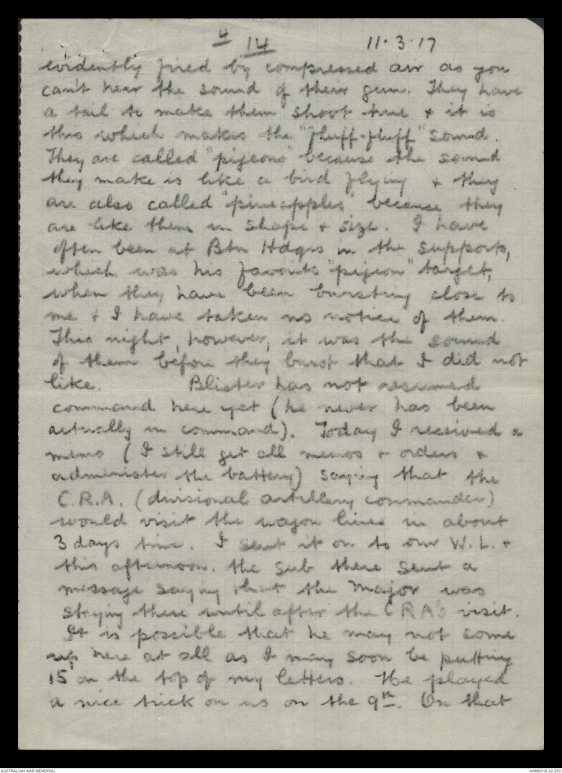 4
14 11.3.17
evidently fired by compressed air as you
can't hear the sound of their gun. They have
a tail to make them shoot true & it is
this which makes the "fluff-fluff" sound.
They are called "pigeons" because the sound
they make is like a bird flying & they
are also called pineapples because they
are like them in shape & size. I have
often been at Btn Hdqrs in the supports,
which was his favorite "pigeon" target,
when they have been bursting close to
me & I have taken no notice of them.
This night, however, it was the sound
of them before they burst that I did not
like. Blister has not resumed
command here yet (he never has been
actually in command). Today I received a
memo (I still get all memos & orders &
administer the battery) saying that the
C.R.A. (divisional artillery commander)
would visit the wagon lines in about
3 days time. I sent it on to our W.L. &
this afternoon. the sub there sent a
message saying that the Major was
staying there until after the CRA's visit.
It is possible that he may not come
up here at all as I may soon be putting
15 on the top of my letters. He played
a nice trick on us on the 9th. On that
AUSTRALIAN WAR MEMORIAL